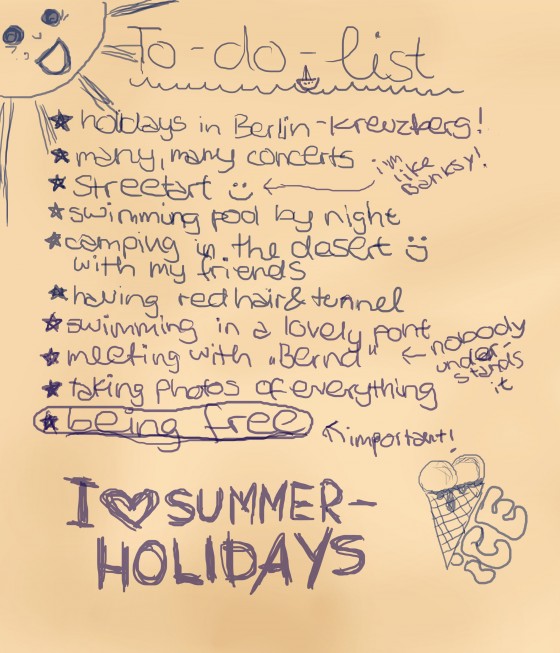 To-do-list
holidays in Berlin-Kreuzberg!
many, many concerts
i'm like Banksy!
Streetart :)
swimming pool by night
camping in the desert :)
with my friends
having red hair & tunnel
swimming in a lovely pont
meeting with „Bernd"
nobody
under-
stands
it
taking photos of everything
being free
important!
I ♥ SUMMER-
HOLIDAYS
ICE